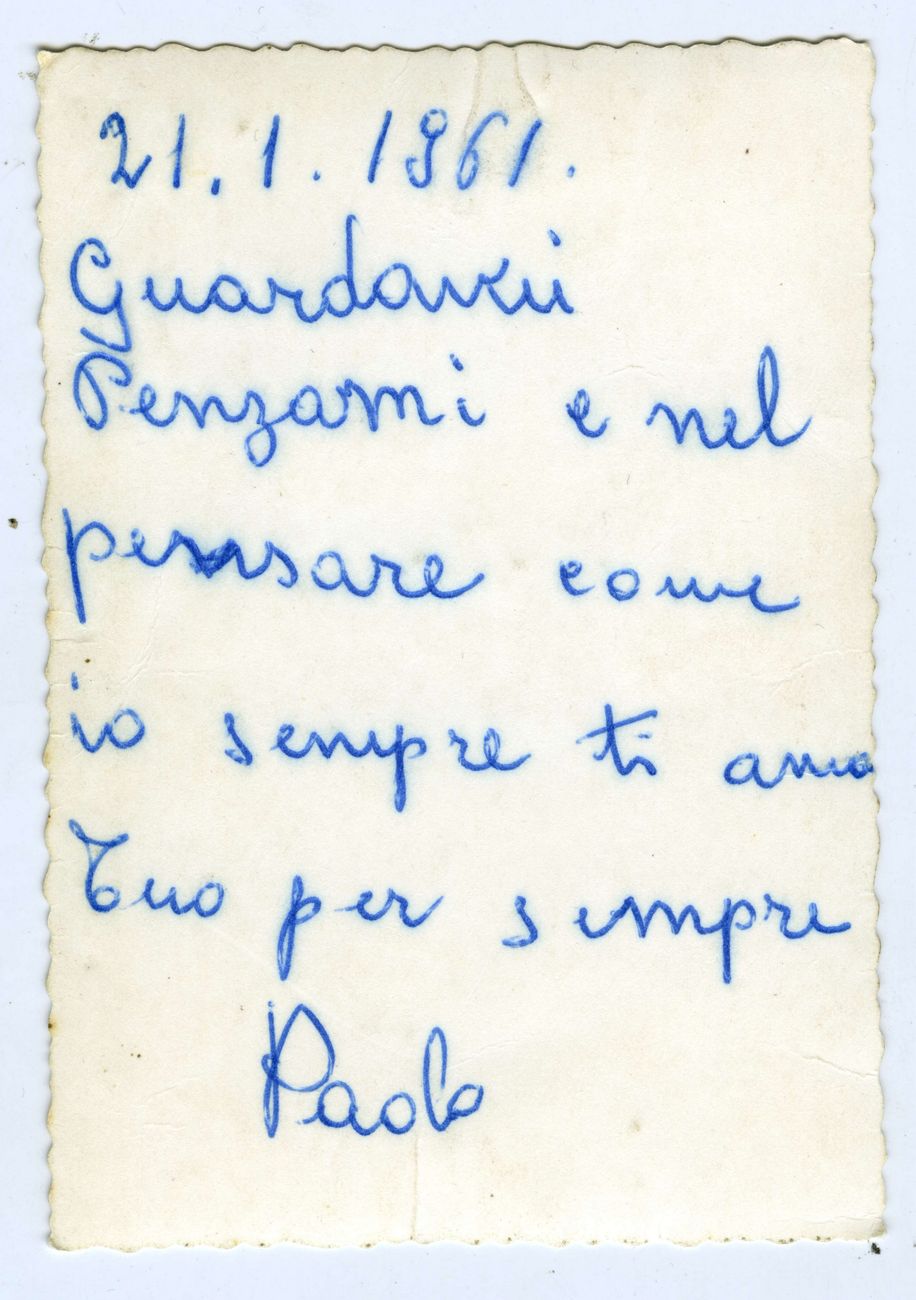 21.1.1961.
Guardavii
Penzami e nel
pensare come
io sempre ti amo
Tuo per sempre
Paolo